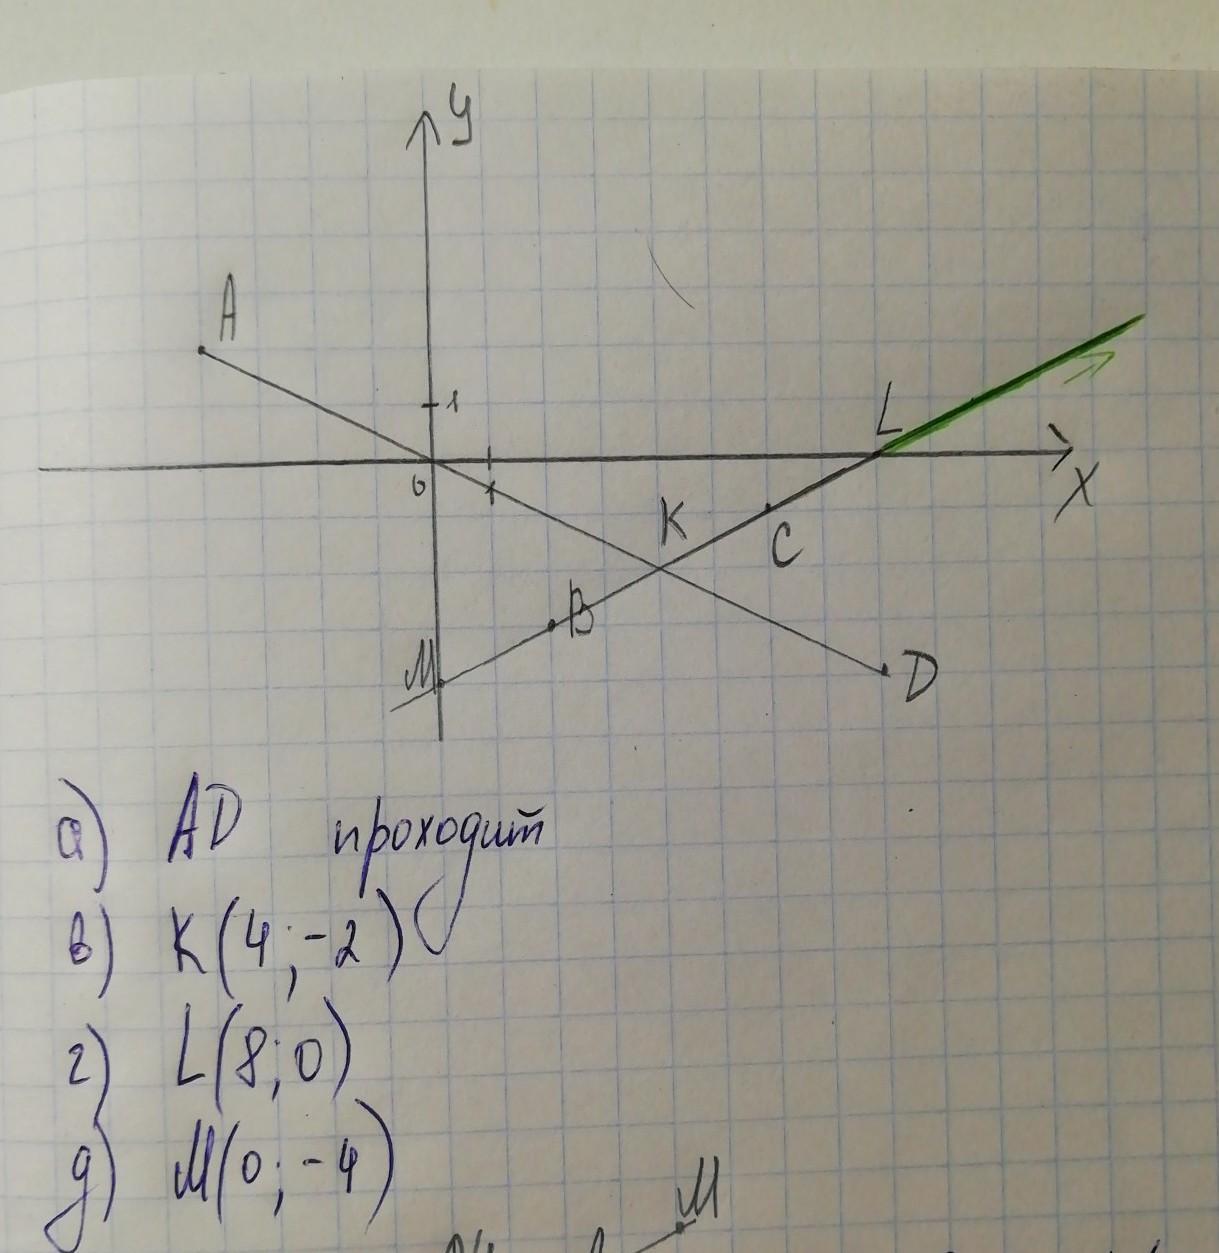 У
А
1
L
0
1
X
К
С
В
М
D
а) AD проходит
в) К(4;-2)
г) L(8;0)
д) М(0;-4)
М